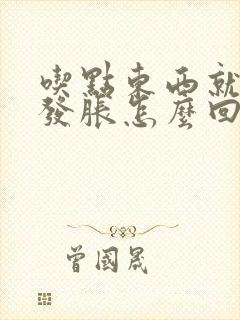 喫點東西就
發脹怎麼回
曾國晟